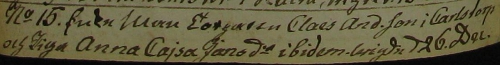 No 15. Enkl. Man Torparen Claes And.son i Carlstorp
och Piga Anna Cajsa Jansdr ibidem. wigde d 26. Dec.